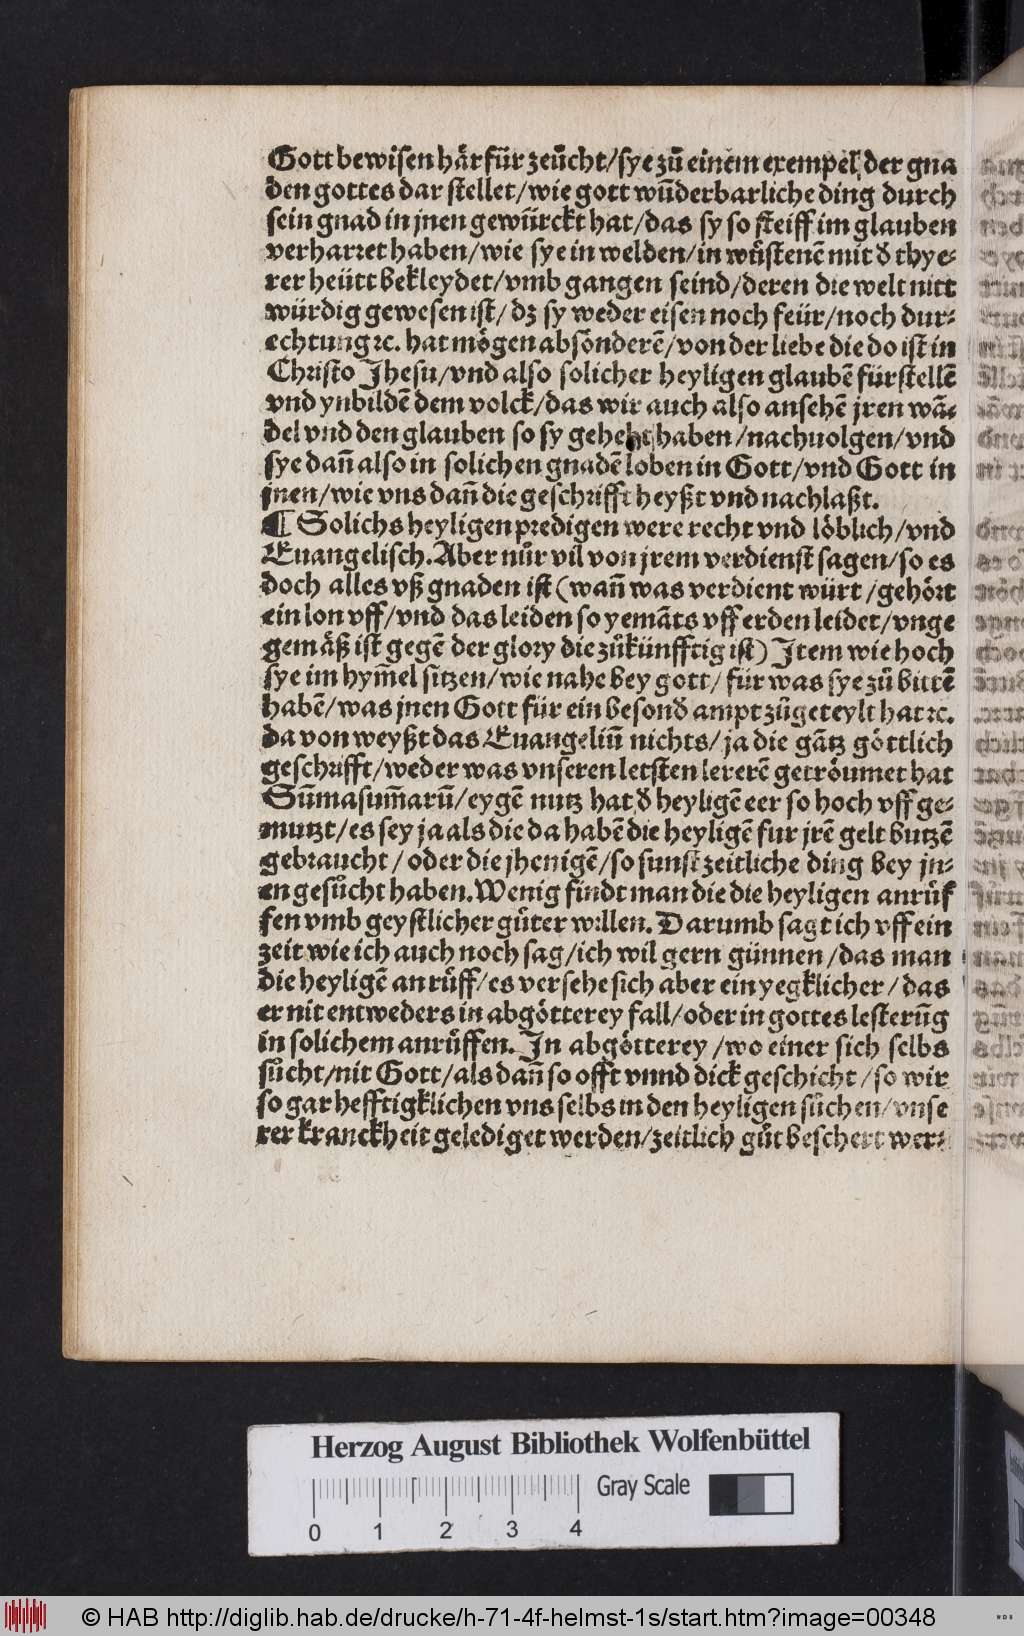 Gott bewisen härfür zeücht/sye zů einem exempel der gna
den gottes dar stellet/wie gott wůderbarliche ding durch
sein gnad in jnen gewürckt hat/das sy so steiff im glauben
verharret haben/wie sye in welden/in wůstenē mit ð thye⸗
rer heütt bekleydet/vmb gangen seind/deren die welt nitt
würdig gewesen ist/dz sy weder eisen noch feür/noch dur⸗
echtung ⁊c. hat mögen absönderē/von der liebe die do ist in
Christo Jhesu/vnd also solicher heyligen glaubē fürstellē
vnd ynbildē dem volck/das wir auch also ansehē jren wā⸗
del vnd den glauben so sy gehebt haben/nachuolgen/vnd
sye dañ also in solichen gnadē loben in Gott/vnd Gott in
jnen/wie vns dañ die geschrifft heyßt vnd nachlaßt.
¶ Solichs heyligen predigen were recht vnd löblich/vnd
Euangelisch. Aber nůr vil von jrem verdienst sagen/so es
doch alles vß gnaden ist (wañ was verdient würt/gehört
ein lon vff/vnd das leiden so yemāts vff erden leidet/vnge
gemäß ist gegē der glory die zůkünfftig ist) Item wie hoch
sye im hym̃el sitzen/wie nahe bey gott/für was sye zů bittē
habē/was jnen Gott für ein besonð ampt zůgeteylt hat ⁊c.
da von weyßt das Euangeliū nichts/ja die gātz göttlich
geschrifft/weder was vnseren letsten lererē getröumet hat
Sūmasum̃arū/eygē nutz hat ð heyligē eer so hoch vff ge⸗
mutzt/es sey ja als die da habē die heyligē fur jrē gelt butzē
gebraucht/oder die jhenigē/so sunst zeitliche ding bey jn⸗
en gesůcht haben. Wenig findt man die die heyligen anrůf
fen vmb geystlicher gůter willen. Darumb sagt ich vff ein
zeit wie ich auch noch sag/ich wil gern günnen/das man
die heyligē an růff/es versehe sich aber ein yegklicher/das
er nit entweders in abgötterey fall/oder in gottes lesterūg
in solichem anrůffen. In abgötterey/wo einer sich selbs
sůcht/nit Gott/als dañ so offt vnnd dick geschicht/so wir
so gar hefftigklichen vns selbs in den heyligen sůchen/vnse
rer kranckheit gelediget werden/zeitlich gůt beschert wer⸗
Herzog August Bibliothek Wolfenbüttel
Gray Scale
0 1 2 3 4
© HAB http://diglib.hab.de/drucke/h-71-4f-helmst-1s/start.htm?image=00348